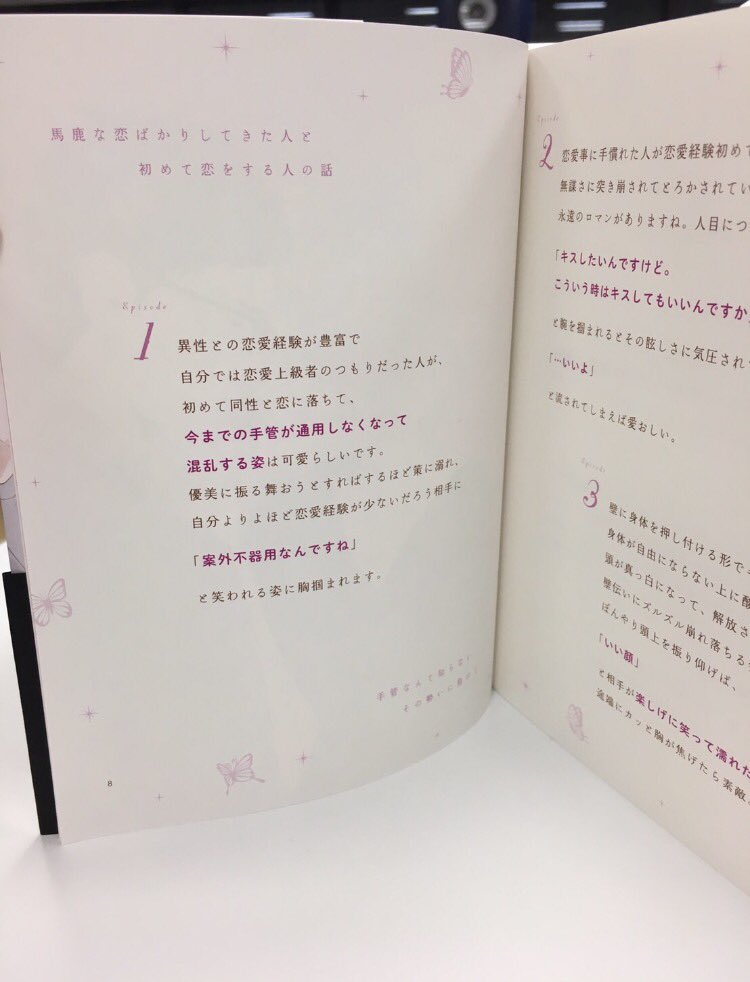 馬鹿な恋ばかりしてきた人と
初めて恋をする人の話
Episode
1
異性との恋愛経験が豊富で
自分では恋愛上級者のつもりだった人が、
初めて同性と恋に落ちて、
今までの手管が通用しなくなって
混乱する姿は可愛らしいです。
優美に振る舞おうとすればするほど策に溺れ、
自分よりよほど恋愛経験が少ないだろう相手に
「案外不器用なんですね」
と笑われる姿に胸掴まれます。
手管なんて知らない
その勢いに
8
Episode
2
恋愛事に手慣れた人が恋愛経験初めて
無謀さに突き崩されてとろかされてい
永遠のロマンがありますね。人目につ
「キスしたいんですけど。
こういう時はキスしてもいいんですか
と腕を掴まれるとその眩しさに気圧され
「…いいよ」
と流されてしまえば愛おしい。
Episode
3
壁に身体を押し付ける形で
身体が自由にならない上に酸
頭が真っ白になって、解放さ
壁伝いにズルズル崩れ落ちる
ぼんやり頭上を振り仰げば、
「いい顔」
と相手が楽しげに笑って濡れた
途端にカッと胸が焦げたら素敵